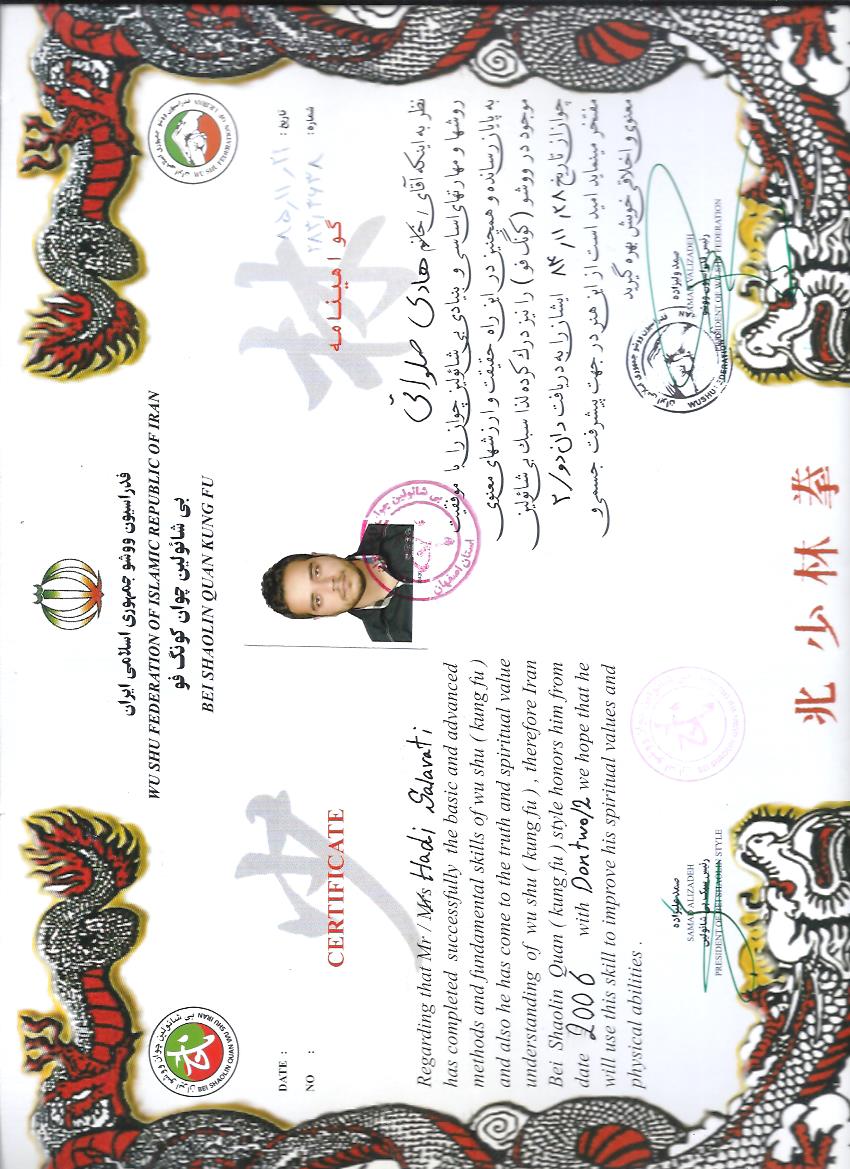 فدراسیون ووشو جمهوری اسلامی ایران
WU SHU FEDERATION OF ISLAMIC REPUBLIC OF IRAN
بی شائولین چوان کونگ فو
BEI SHAOLIN QUAN KUNG FU
DATE :
NO :
CERTIFICATE
Regarding that Mr / Mrs Hadi Salavati
has completed successfully the basic and advanced
methods and fundamental skills of wu shu ( kung fu )
and also he has come to the truth and spiritual value
understanding of wu shu ( kung fu ) , therefore Iran
Bei Shaolin Quan ( kung fu ) style honors him from
date 2006 with Don two/2 we hope that he
will use this skill to improve his spiritual values and
physical abilities .
صمد علیزاده
SAMAD ALIZADEH
رئیس سبک بی شائولین
PRESIDENT OF BEI SHAOLIN STYLE
تاریخ : ۸۵,۱۱,۲۱
شماره:
گواهینامه
نظر به اینکه آقای/خانم هادی صلواتی
روشها و مهارتهای اساسی و بنیادی بی شائولین چوان را با موفقیت
به پایان رسانده و همچنین در این راه حقیقت و ارزشهای معنوی
موجود در ووشو (کونگ فو) را نیز درک کرده لذا سبک بی شائولین
چوان از تاریخ ۸۴,۱۱,۲۸ ایشان را به دریافت دان دو/۲
مفتخر مینماید امید است از این هنر در جهت پیشرفت جسمی و
معنوی و اخلاقی خویش بهره گیرید
صمد علیزاده
SAMAD ALIZADEH
رئیس فدراسیون ووشو
PRESIDENT OF WU SHU FEDERATION
北少林拳
少
林
بی شائولین چوان
استان اصفهان
WUSHU FEDERATION
BEI SHAOLIN QUAN